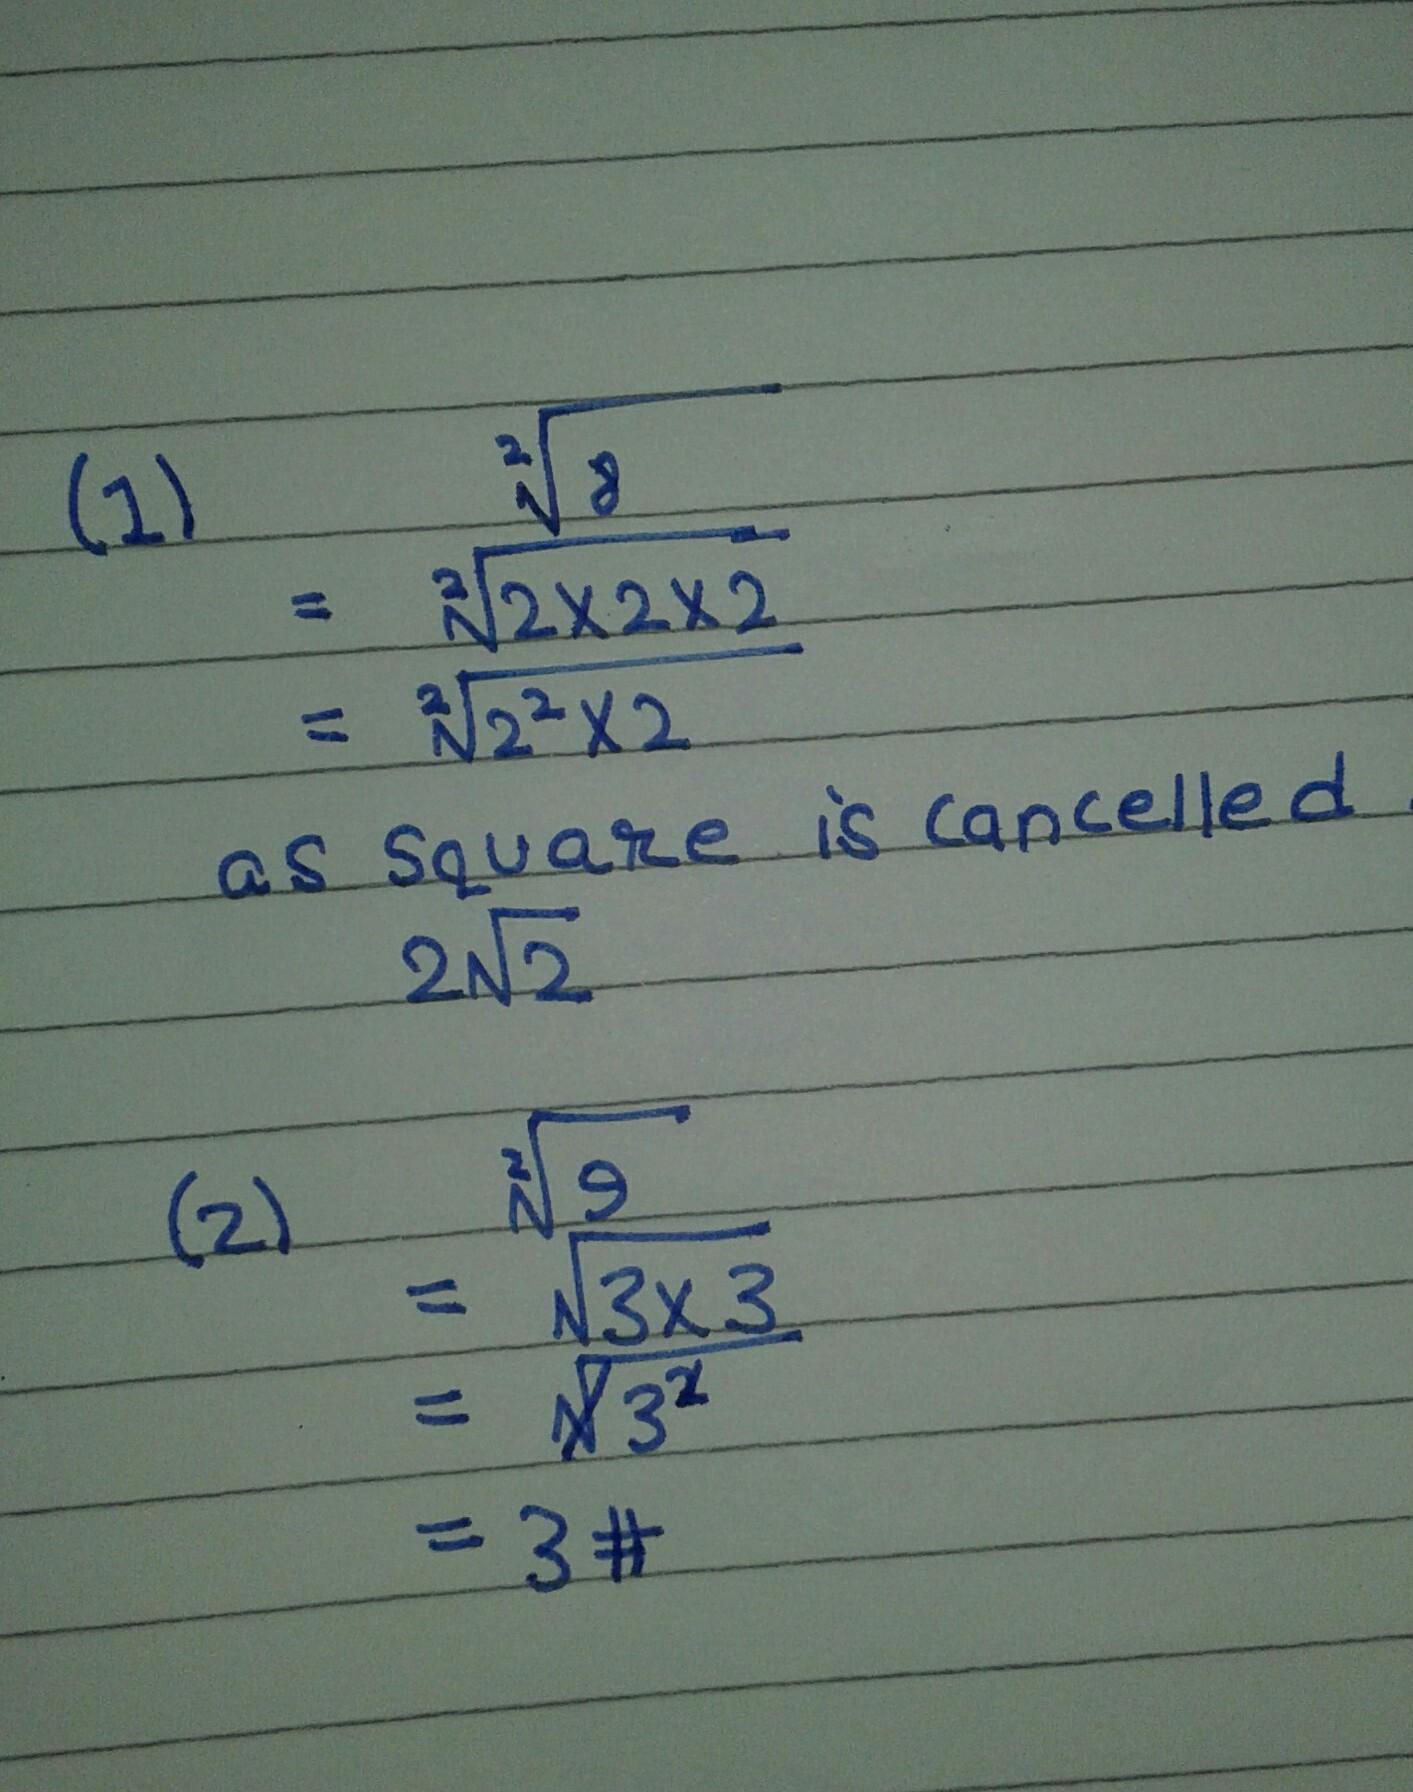 (1) ²√8
= ²√2×2×2
= ²√2²×2
as square is cancelled.
2√2
(2) ²√9
= √3×3
= √3²
= 3#